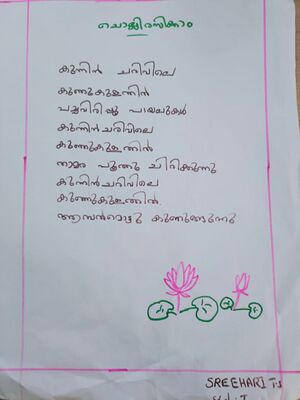 ചൊല്ലിരസിക്കാം
കുന്നിൻ ചരിവിലെ
കുഞ്ഞുകുളത്തിൻ
പച്ചവിരിച്ചു പായലുകൾ
കുന്നിൻചരിവിലെ
കുഞ്ഞുകുളത്തിൽ
താമര പൂത്തു ചിരിക്കുന്നു
കുന്നിൻചരിവിലെ
കുഞ്ഞുകുളത്തിൽ
കുണുങ്ങുന്നു
SREEHARI T.S